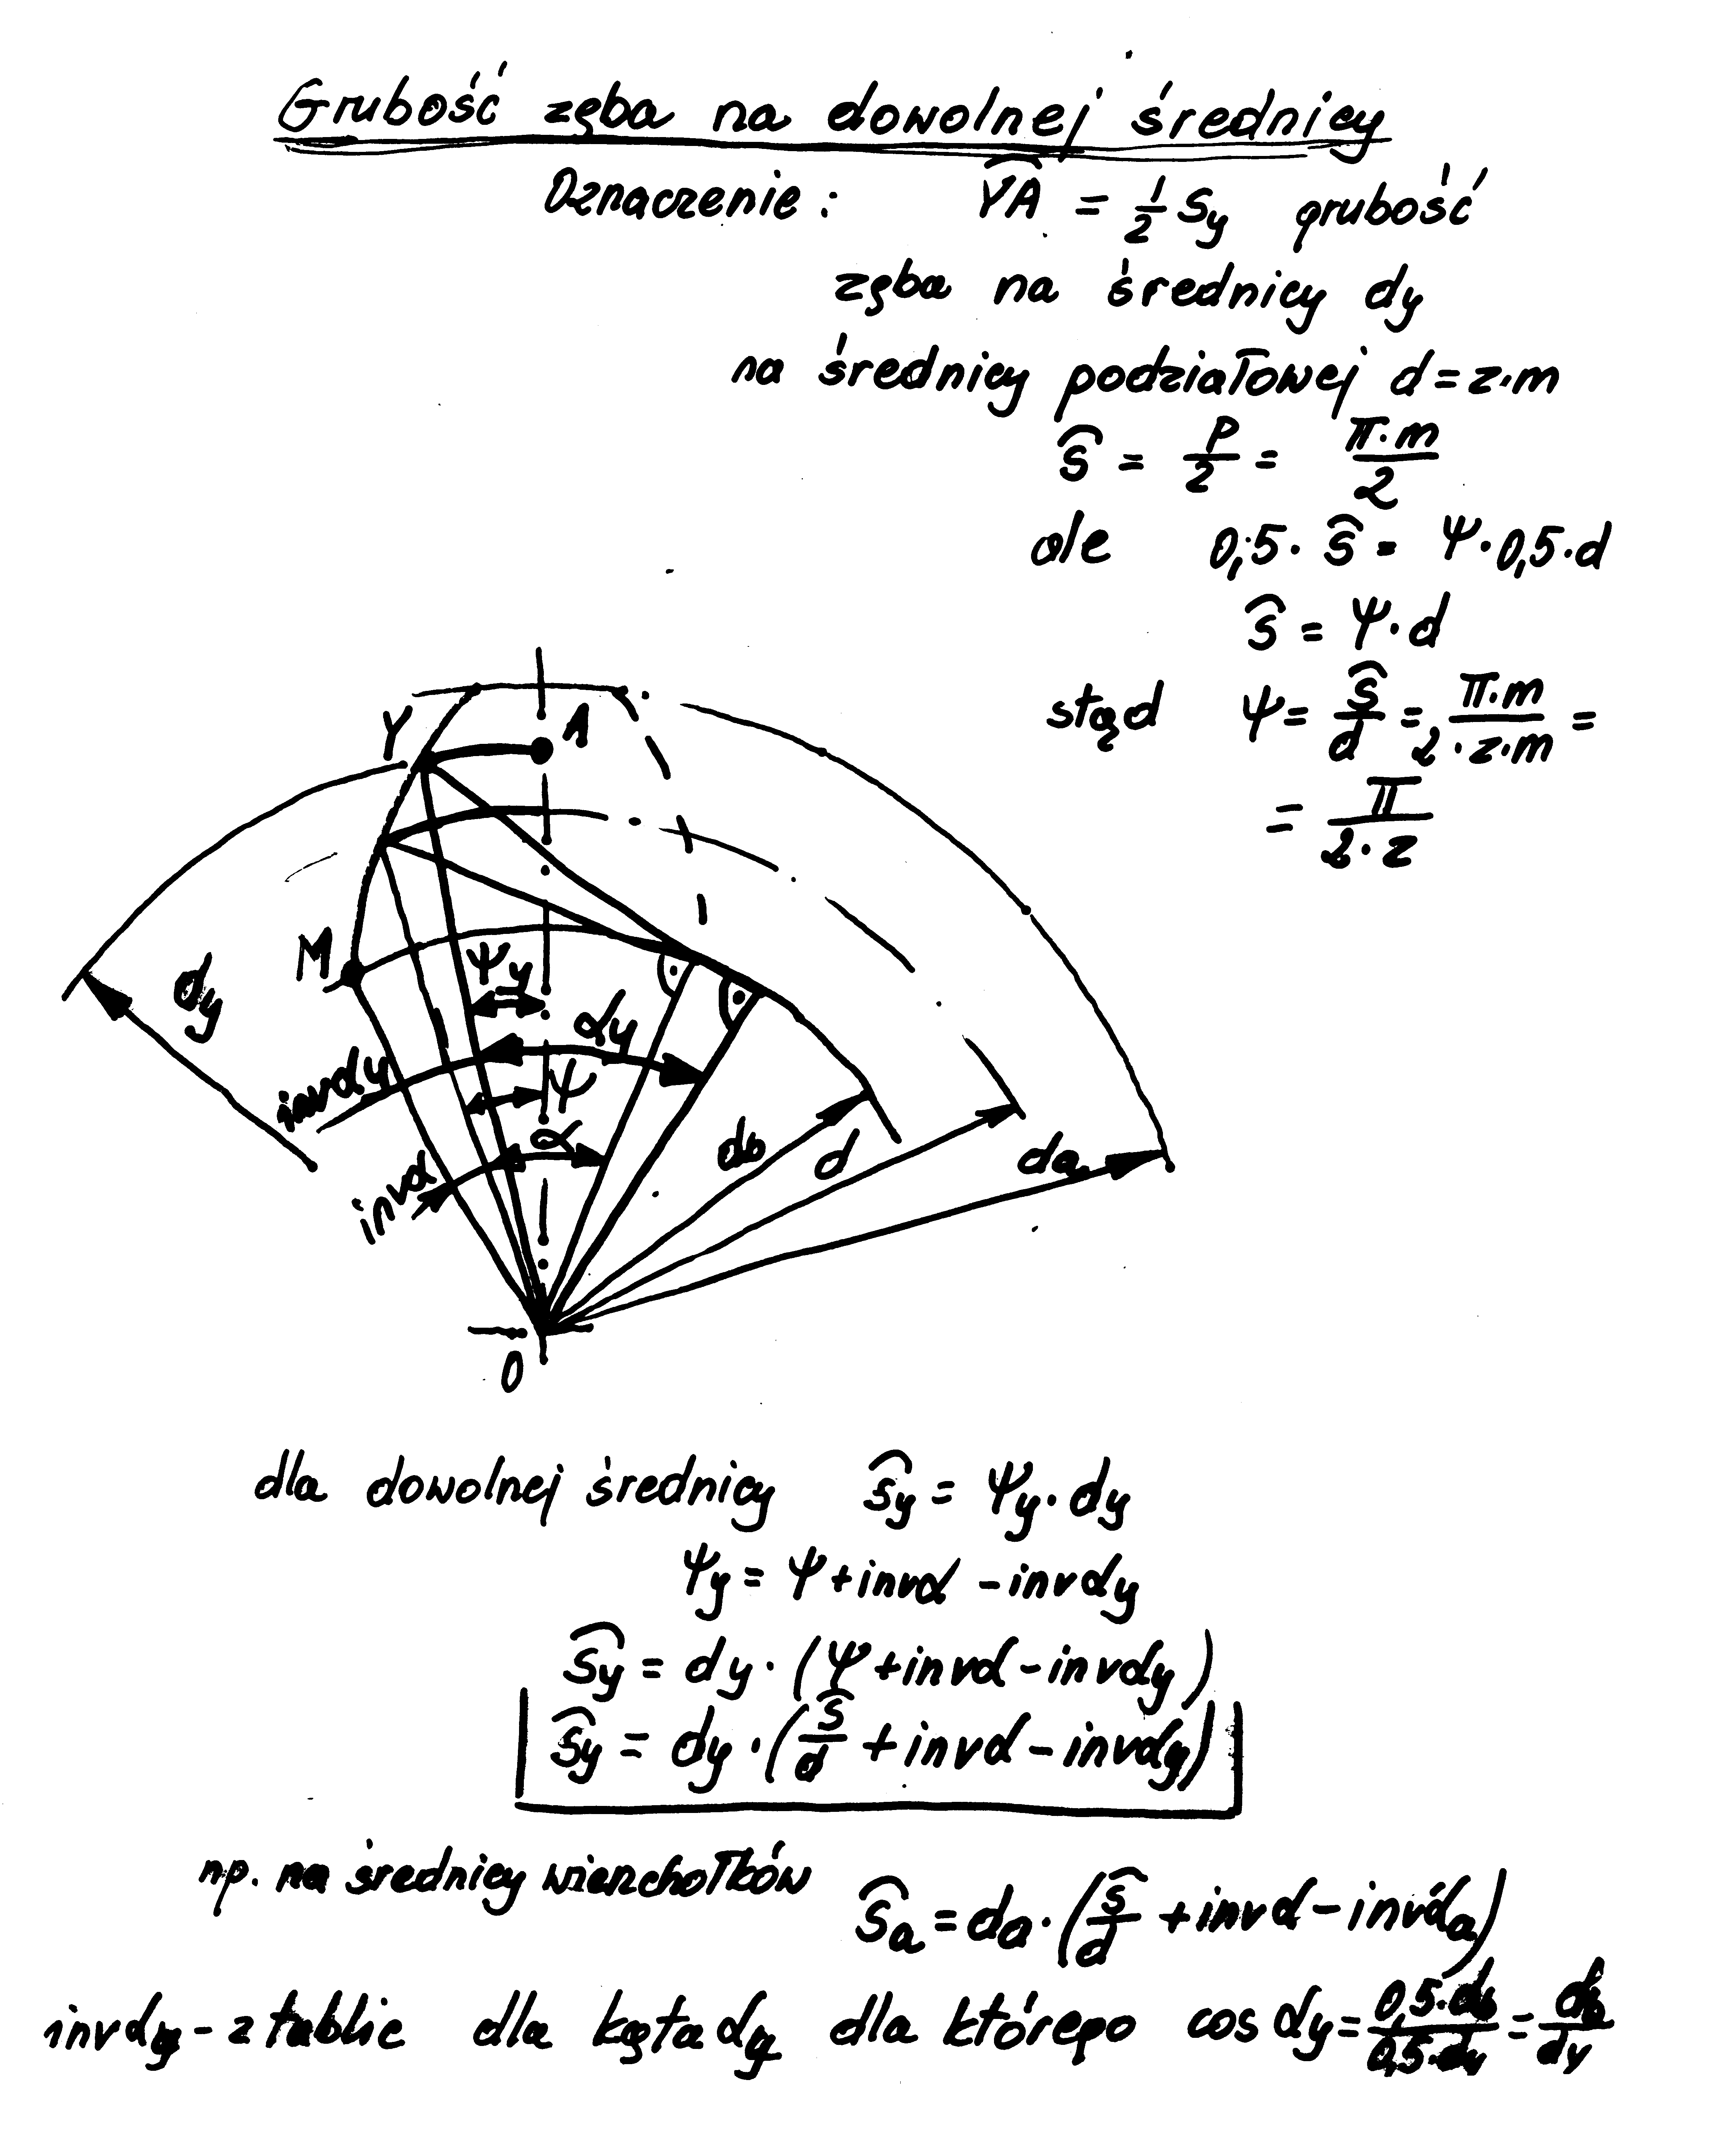 Grubość zęba na dowolnej średnicy
Oznaczenie: YA = 1/2 sy grubość
zęba na średnicy dy
na średnicy podziałowej d=z·m
ŝ = p/2 = π·m/2
ale 0,5·ŝ = ψ·0,5·d
ŝ = ψ·d
stąd ψ = ŝ/d = π·m/2·z·m =
= π/2·z
Y
A
M
dy
ψy
αy
invαy
ψ
α
invα
db
d
da
O
dla dowolnej średnicy ŝy = ψy·dy
ψy = ψ+invα - invαy
ŝy = dy·(ψ+invα-invαy)
ŝy = dy·(ŝ/d + invα - invαy)
np. na średnicy wierzchołków ŝa = da·(ŝ/d + invα - invαa)
invαy - z tablic dla kąta αy dla którego cos αy = 0,5·db/0,5·dy = db/dy